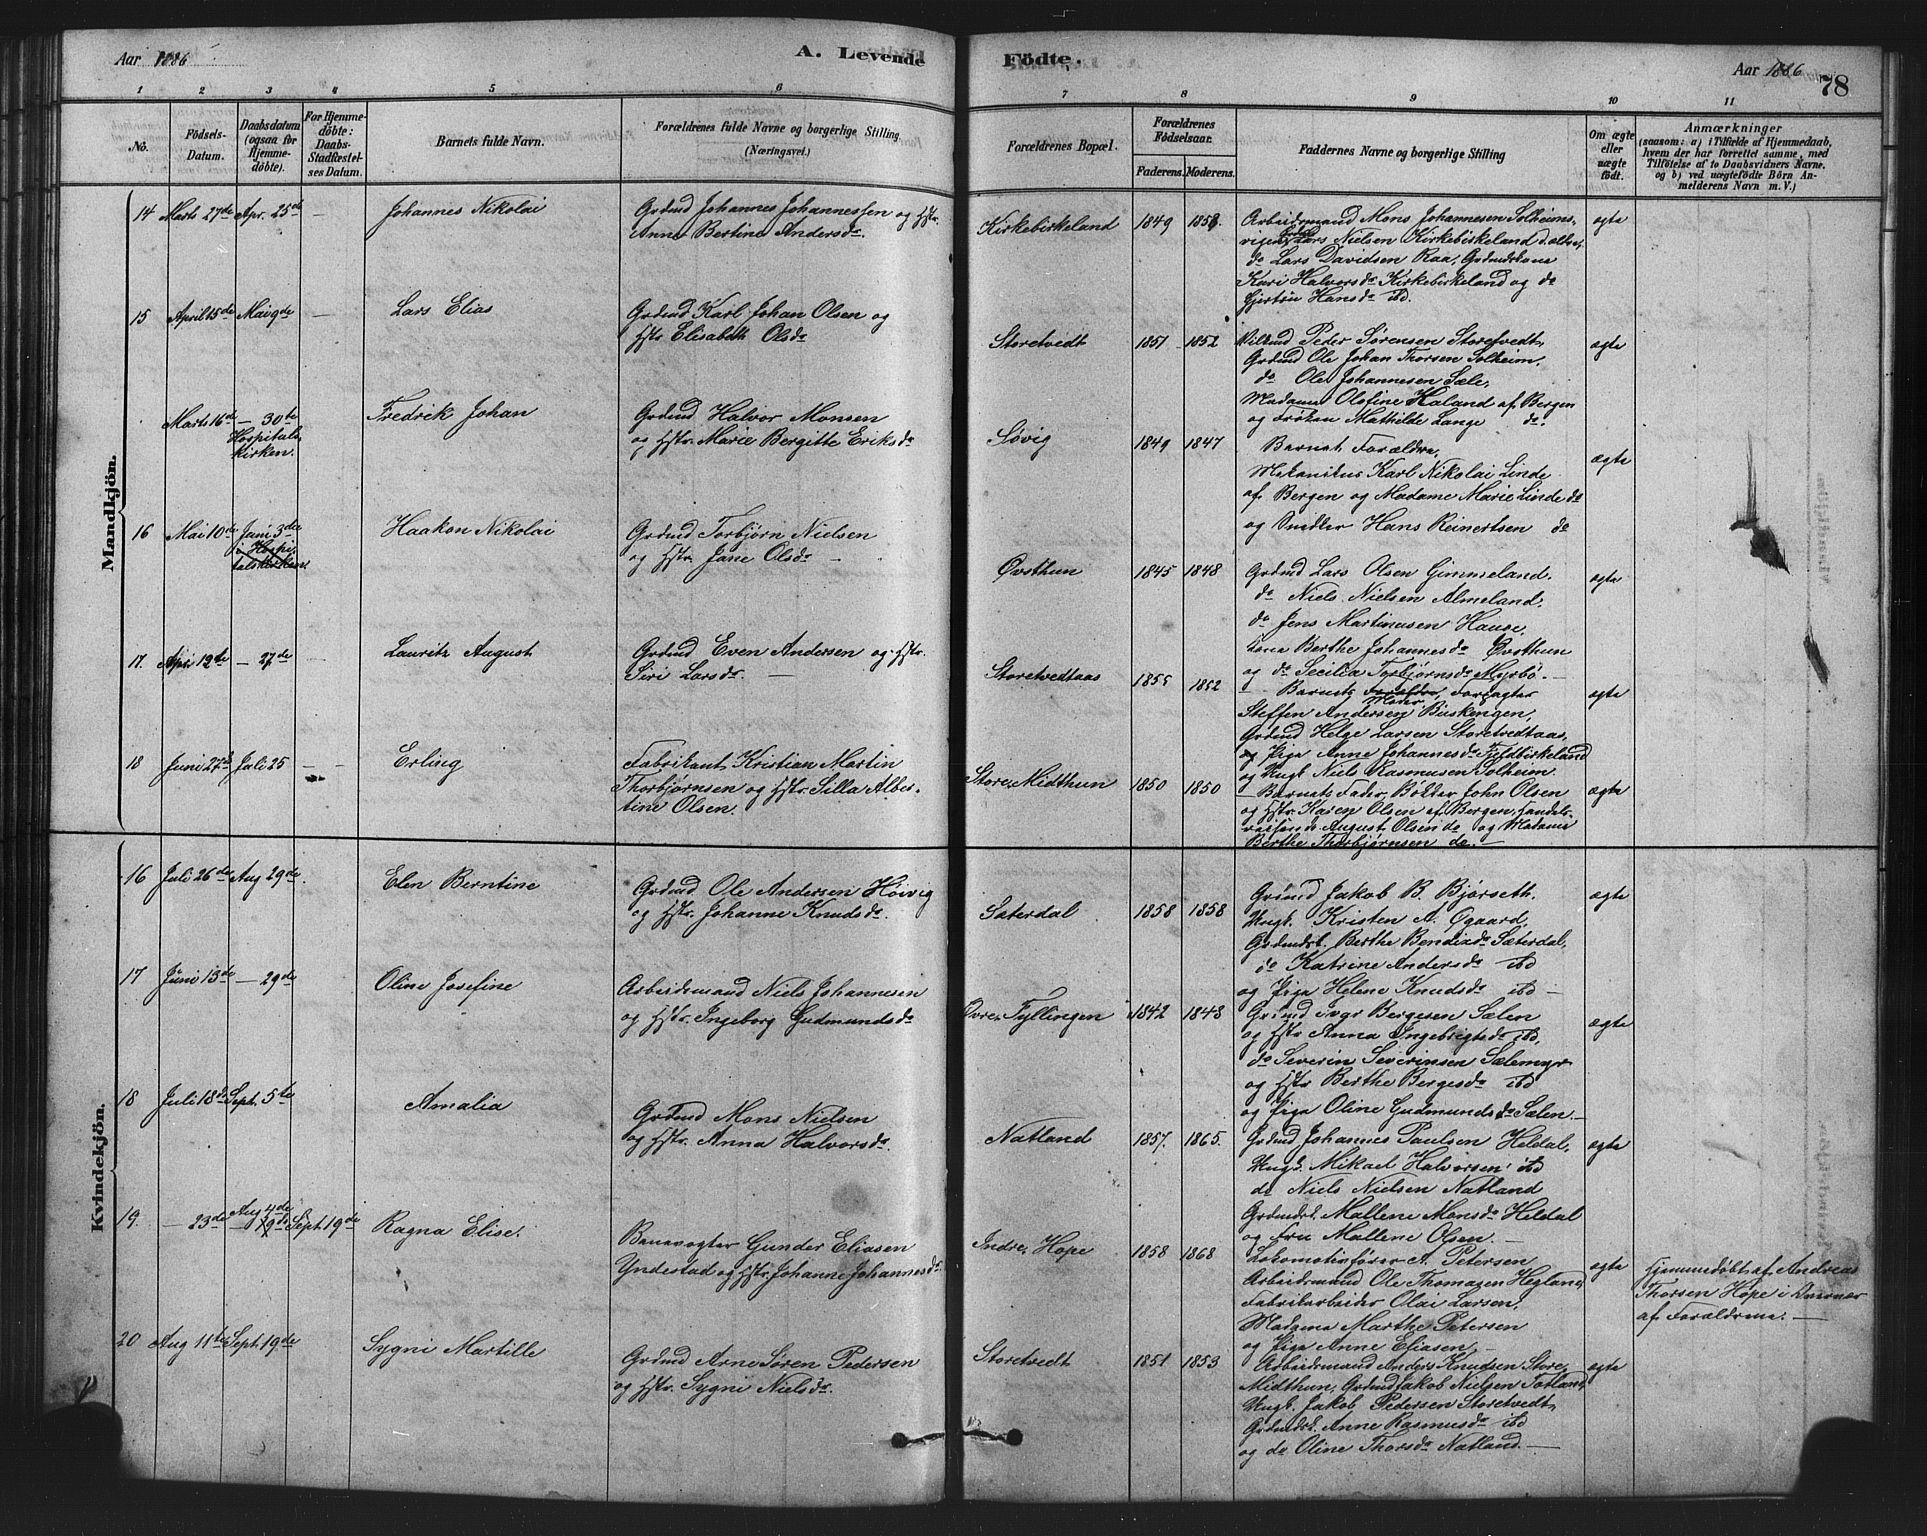 Aar 1886
A. Levende
Födte.
Aar 1886
78
1 2 3 4 5 6 7 8 9 10 11
No.
Födsels-
Datum.
Daabsdatum
(ogsaa for
Hjemme-
döbte).
For Hjemme-
döbte:
Daabs-
Stadfæstel-
ses Datum.
Barnets fulde Navn.
Forældrenes fulde Navne og borgerlige Stilling
(Næringsvei.)
Forældrenes Bopæl.
Forældrenes
Födselsaar.
Faderens. Moderens.
Faddernes Navne og borgerlige Stilling
Om ægte
eller
uægte
födt.
Anmærkninger
(saasom: a) i Tilfælde af Hjemmedaab,
hvem der har forrettet samme, med
Tilföielse af to Daabsvidners Navne.
og b) ved uægtefödte Börn An-
melderens Navn m. V.)
Mandkjön.
14 Marts 27de Apr. 25de —
Johannes Nikolai
Grdmd Johannes Johannessen og Hstr.
Anna Bertine Andersdr.
Kirkebirkeland 1849
Arbeidsmand Mons Johannesen Solheims-
vigen, Grdmd Lars Nielsen Kirkebirkeland
do Lars Davidsen Raa, Grdmdskone
Kari Halvorsdr Kirkebirkeland og do
Gjertrü Hansdr ibd.
ægte
15 April 15de Mai 9de —
Lars Elias
Grdmd Karl Johan Olsen og
Hstr Elisabeth Olsdr
Storetvedt 1851 1852
Peder Sørensen Storetvedt,
Grdmd Ole Johan Thorsen Solheim,
do Ole Johannesen Sæle,
Madame Olsfine Haland af Bergen
og Frøken Mathilde Lange do.
ægte
Marts 16de — 30te
Hospitals-
kirken.
Fredrik Johan
Grdmd Halvor Monsen
og Hstr. Marie Bergitte Eriksdr
Søvig 1849 1847
Barnets Forældre,
Mekanikus Karl Nikolai Linde
af Bergen og Madame Marie Linde do
og Snedker Hans Reinertsen do
ægte
16 Mai 10de Juni 3die
i Hospi-
talskirken
Haakon Nikolai
Grdmd Torbjørn Nielsen
og Hstr. Jane Olsdr —
Øvsthun 1845 1848
Grdmd Lars Olsen Gimmeland.
do Niels Nielsen Almeland,
do Jens Martinusen Hauge,
Kone Berthe Johannesdr Øvsthun
og do Secilia Torbjørnsdr Myrbø. —
ægte
17. Apr. 12te — 27de —
Lauritz August
Grdmd Even Andersen og Hstr.
Siri Larsdr. —
Storetvedtaas 1855 1852
— Barnets Forældre, Moder, Forpagter
Steffen Andersen Birkengen,
Grdmd Helge Larsen Storetvedtaas,
og Pige Anne Johannesdr Fjeldbirkeland
og Ungk Niels Rasmusen Solheim.
ægte
18 Juni 27de Juli 25 — —
Erling
Fabrikant Kristian Martin
Thorbjørnsen og Hstr. Silla Albes-
tine Olsen.
Store, Midthun 1850 1850
— Barnets Fader, Bødker John Olsen
og Hstr. Karen Olsen af Bergen, Handels-
reisende August Olsen do og Madame
Berthe Thorbjørnsen do. —
ægte
Kvindekjön.
16 Juli 26de Aug 29de.
Elen Berntine
Grdmd Ole Andersen Høivig
og Hstr. Johanne Knudsdr.
Sæterdal 1858 1858
Grdmd Jakob B. Bjørseth.
Ungk. Kristen A. Øgaard
Grdmdsk. Berthe Bendixdr Sæterdal,
do Katrine Andersdr ibd
og Pige Helene Knudsdr ibd —
ægte
17 Juni 13de — 29de
Oline Josefine
Arbeidsmand Niels Johannesen
og Hstr. Ingeborg Gudmundsdr
Øvre, Fyllingen 1842 1843
Grdmd Ivar Bergesen Sælen
og Hstr Anna Ingebrigtsdr ibd,
do Severin Severinsen Sælemyr
og Hstr Berthe Bergesdr ibd
og Pige Oline Gudmundsdr Sælen —
ægte
18 Juli 18de Sept. 5te
Amalia
Grdmd Mons Nielsen
og Hstr. Anna Halvorsdr.
Natland 1857. 1865.
Grdmd Johannes Paulsen Heldal,
Ungk. Mikael Halvorsen ibd
do Niels Nielsen Natland
Grdmdsk. Mallene Monsdr Heldal
og Fru Mallene Olsen. —
ægte
19. — 23de Aug 4de
Sept 19de
Ragna Elise.
Banevogter Gunder Eliasen
Yndestad og Hstr. Johanne Johannesdr.
Indre, Hope 1858 1868
Lokomotivfører A. Petersen
Arbeidsmand Ole Thomasen Hegland,
Fabrikarbeider Olai Larsen,
Madame Marthe Petersen
og Pige Anne Eliasen —
ægte
Hjemmedøbt af Andreas
Thorsen Hope i Nærvær
af Forældrene. —
20 Aug 11te Sept. 19de
Sygni Martille
Grdmd Arne Søren Pedersen
og Hstr. Sygni Nielsdr.
Storetvedt 1851 1853
Arbeidsmand Anders Knudsen Store
Midthun, Grdmd Jakob Nielsen Totland,
Ungk. Jakob Pedersen Storetvedt,
Grdmdsk. Anne Rasmusdr ibd
og do Oline Thorsdr Natland. —
ægte